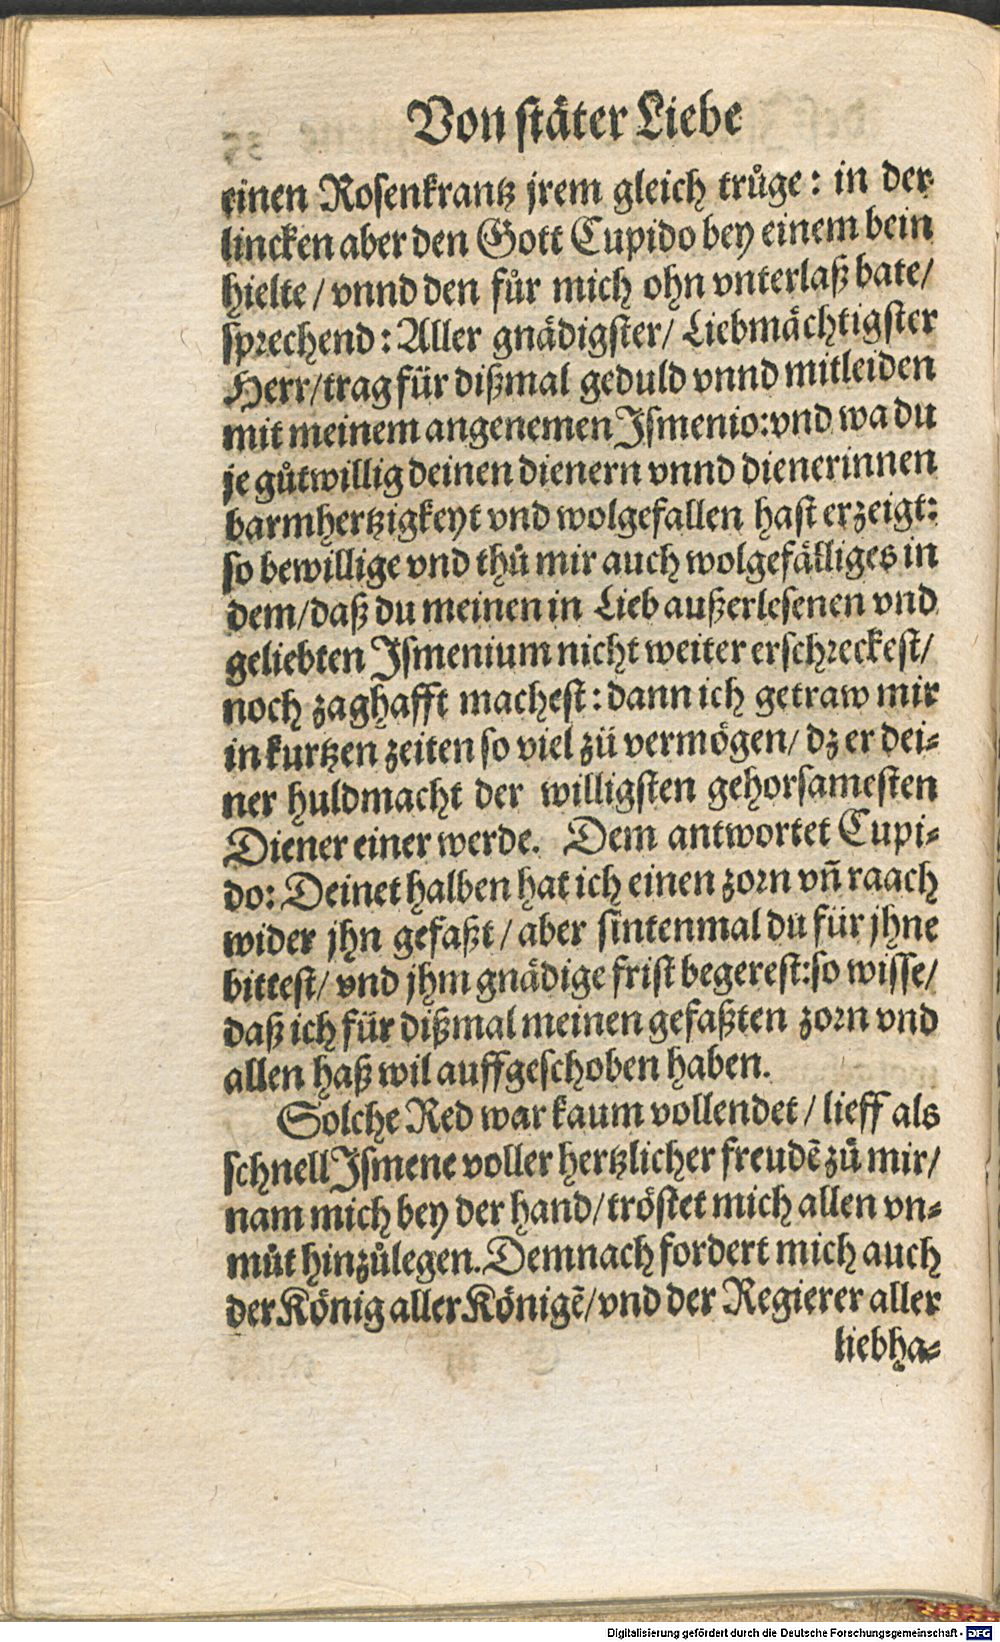 Von stäter Liebe
einen Rosenkrantz jrem gleich trůge: in der
lincken aber den Gott Cupido bey einem bein
hielte / vnnd den fůr mich ohn vnterlaß bate/
sprechend: Aller gnädigster/ Liebmächtigster
Herr/trag für dißmal geduld vnnd mitleiden
mit meinem angenemen Jsmenio: vnd wa du
je gůtwillig deinen dienern vnnd dienerinnen
barmhertzigkeyt vnd wolgefallen hast erzeigt:
so bewillige vnd thů mir auch wolgefälliges in
dem/daß du meinen in Lieb außerlesenen vnd
geliebten Jsmenium nicht weiter erschreckest/
noch zaghafft machest: dann ich getraw mir
in kurtzen zeiten so viel zü vermögen/ dz er dei-
ner huldmacht der willigsten gehorsamesten
Diener einer werde. Dem antwortet Cupi-
do: Deinet halben hat ich einen zorn vñ raach
wider jhn gefaßt / aber sintenmal du für jhne
bittest/ vnd jhm gnädige frist begerest: so wisse/
daß ich für dißmal meinen gefaßten zorn vnd
allen haß wil auffgeschoben haben.
Solche Red war kaum vollendet / lieff als
schnell Jsmene voller hertzlicher freudẽ zů mir/
nam mich bey der hand/ tröstet mich allen vn-
můt hinzůlegen. Demnach fordert mich auch
der König aller Königẽ/ vnd der Regierer aller
liebha-
Digitalisierung gefördert durch die Deutsche Forschungsgemeinschaft - DFG